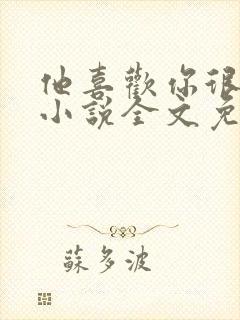 他喜歡你很
小說全文免
蘇多波